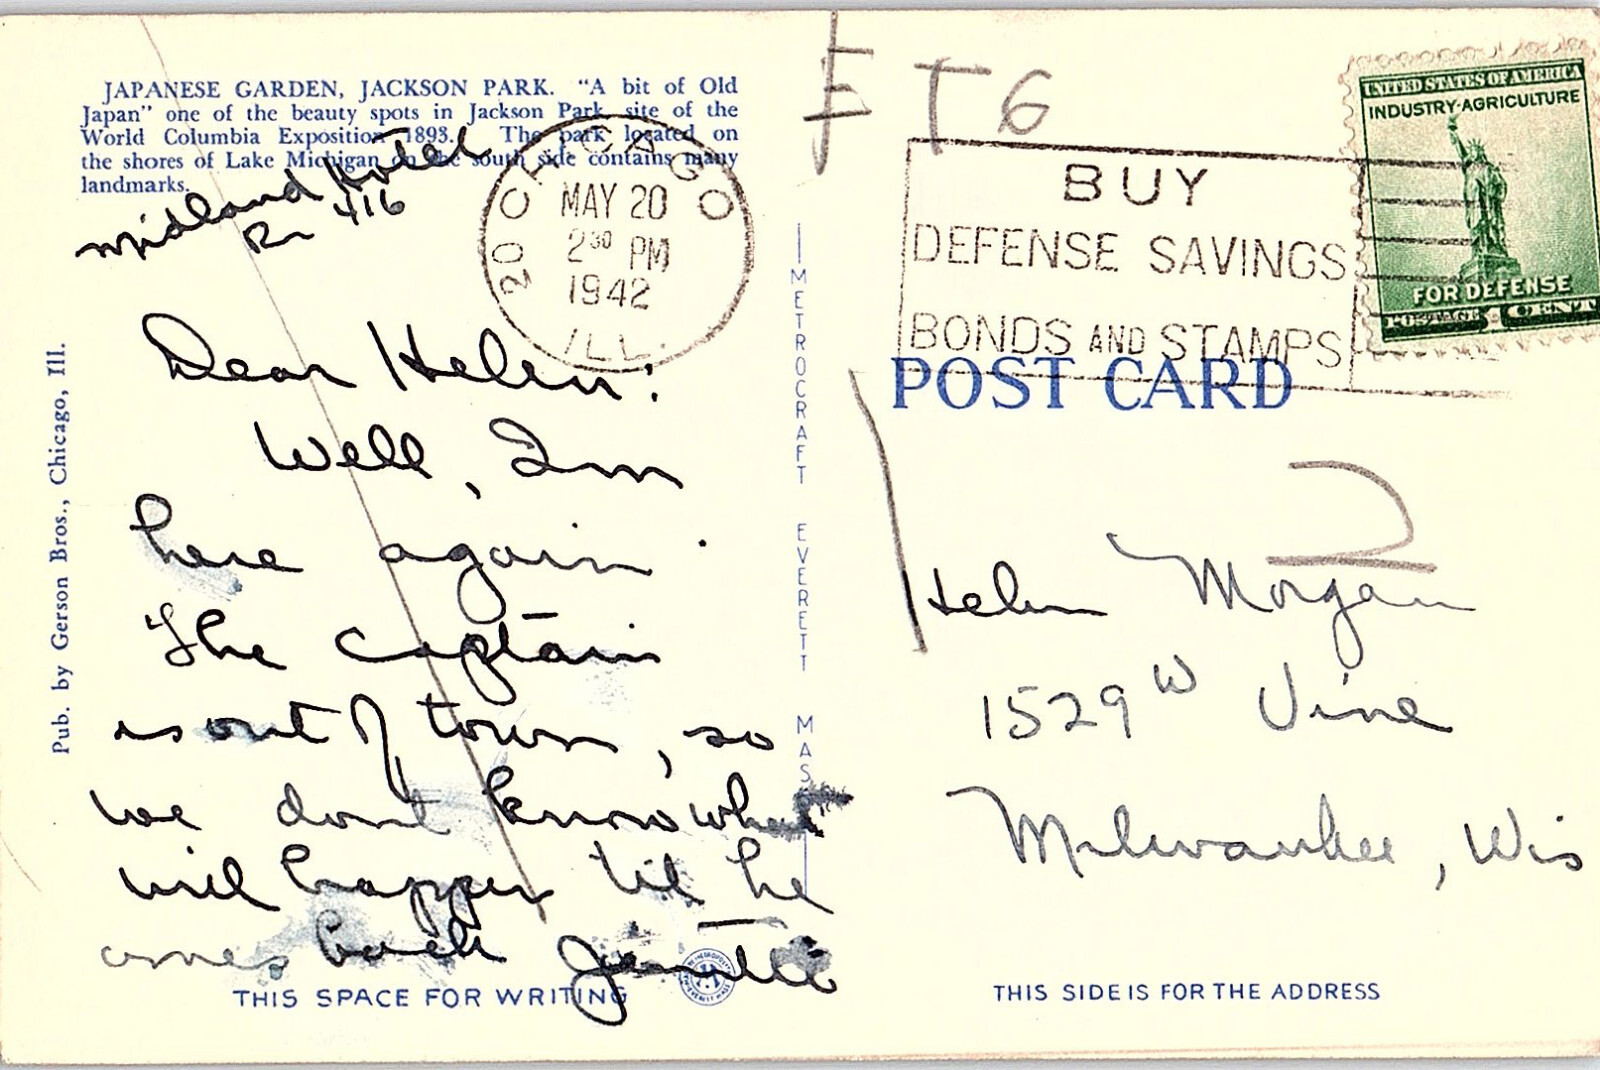 JAPANESE GARDEN, JACKSON PARK. "A bit of Old
Japan" one of the beauty spots in Jackson Park, site of the
World Columbia Exposition 1893. The park located on
the shores of Lake Michigan on the south side contains many
landmarks.
Midland Hotel
Rm 416
20 CHICAGO
MAY 20
2 30 PM
1942
ILL.
Dear Helen:
Well, Im
here again.
The Captain
is out of town, so
we dont know what
will happen til he
comes back
THIS SPACE FOR WRITING
Pub. by Gerson Bros., Chicago, Ill.
METROCRAFT EVERETT MASS
BUY
DEFENSE SAVINGS
BONDS AND STAMPS
UNITED STATES OF AMERICA
INDUSTRY·AGRICULTURE
FOR DEFENSE
POSTAGE 1 CENT
POST CARD
Helen Morgan
1529 W Vine
Milwaukee, Wis
THIS SIDE IS FOR THE ADDRESS